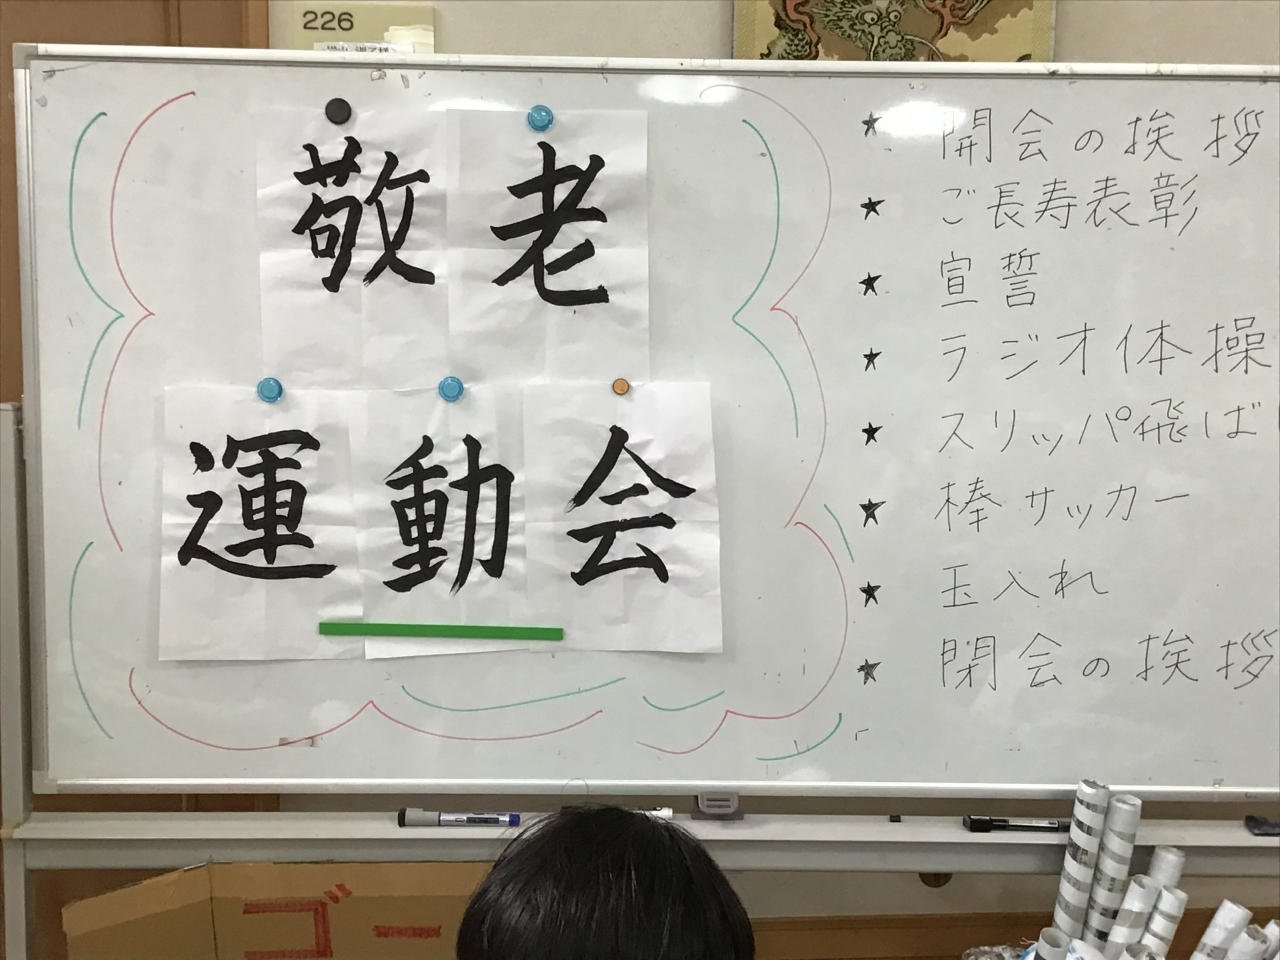 226
敬老
運動会
★ 開会の挨拶
★ ご長寿表彰
★ 宣誓
★ ラジオ体操
★ スリッパ飛ば
★ 棒サッカー
★ 玉入れ
★ 閉会の挨拶
ゴー